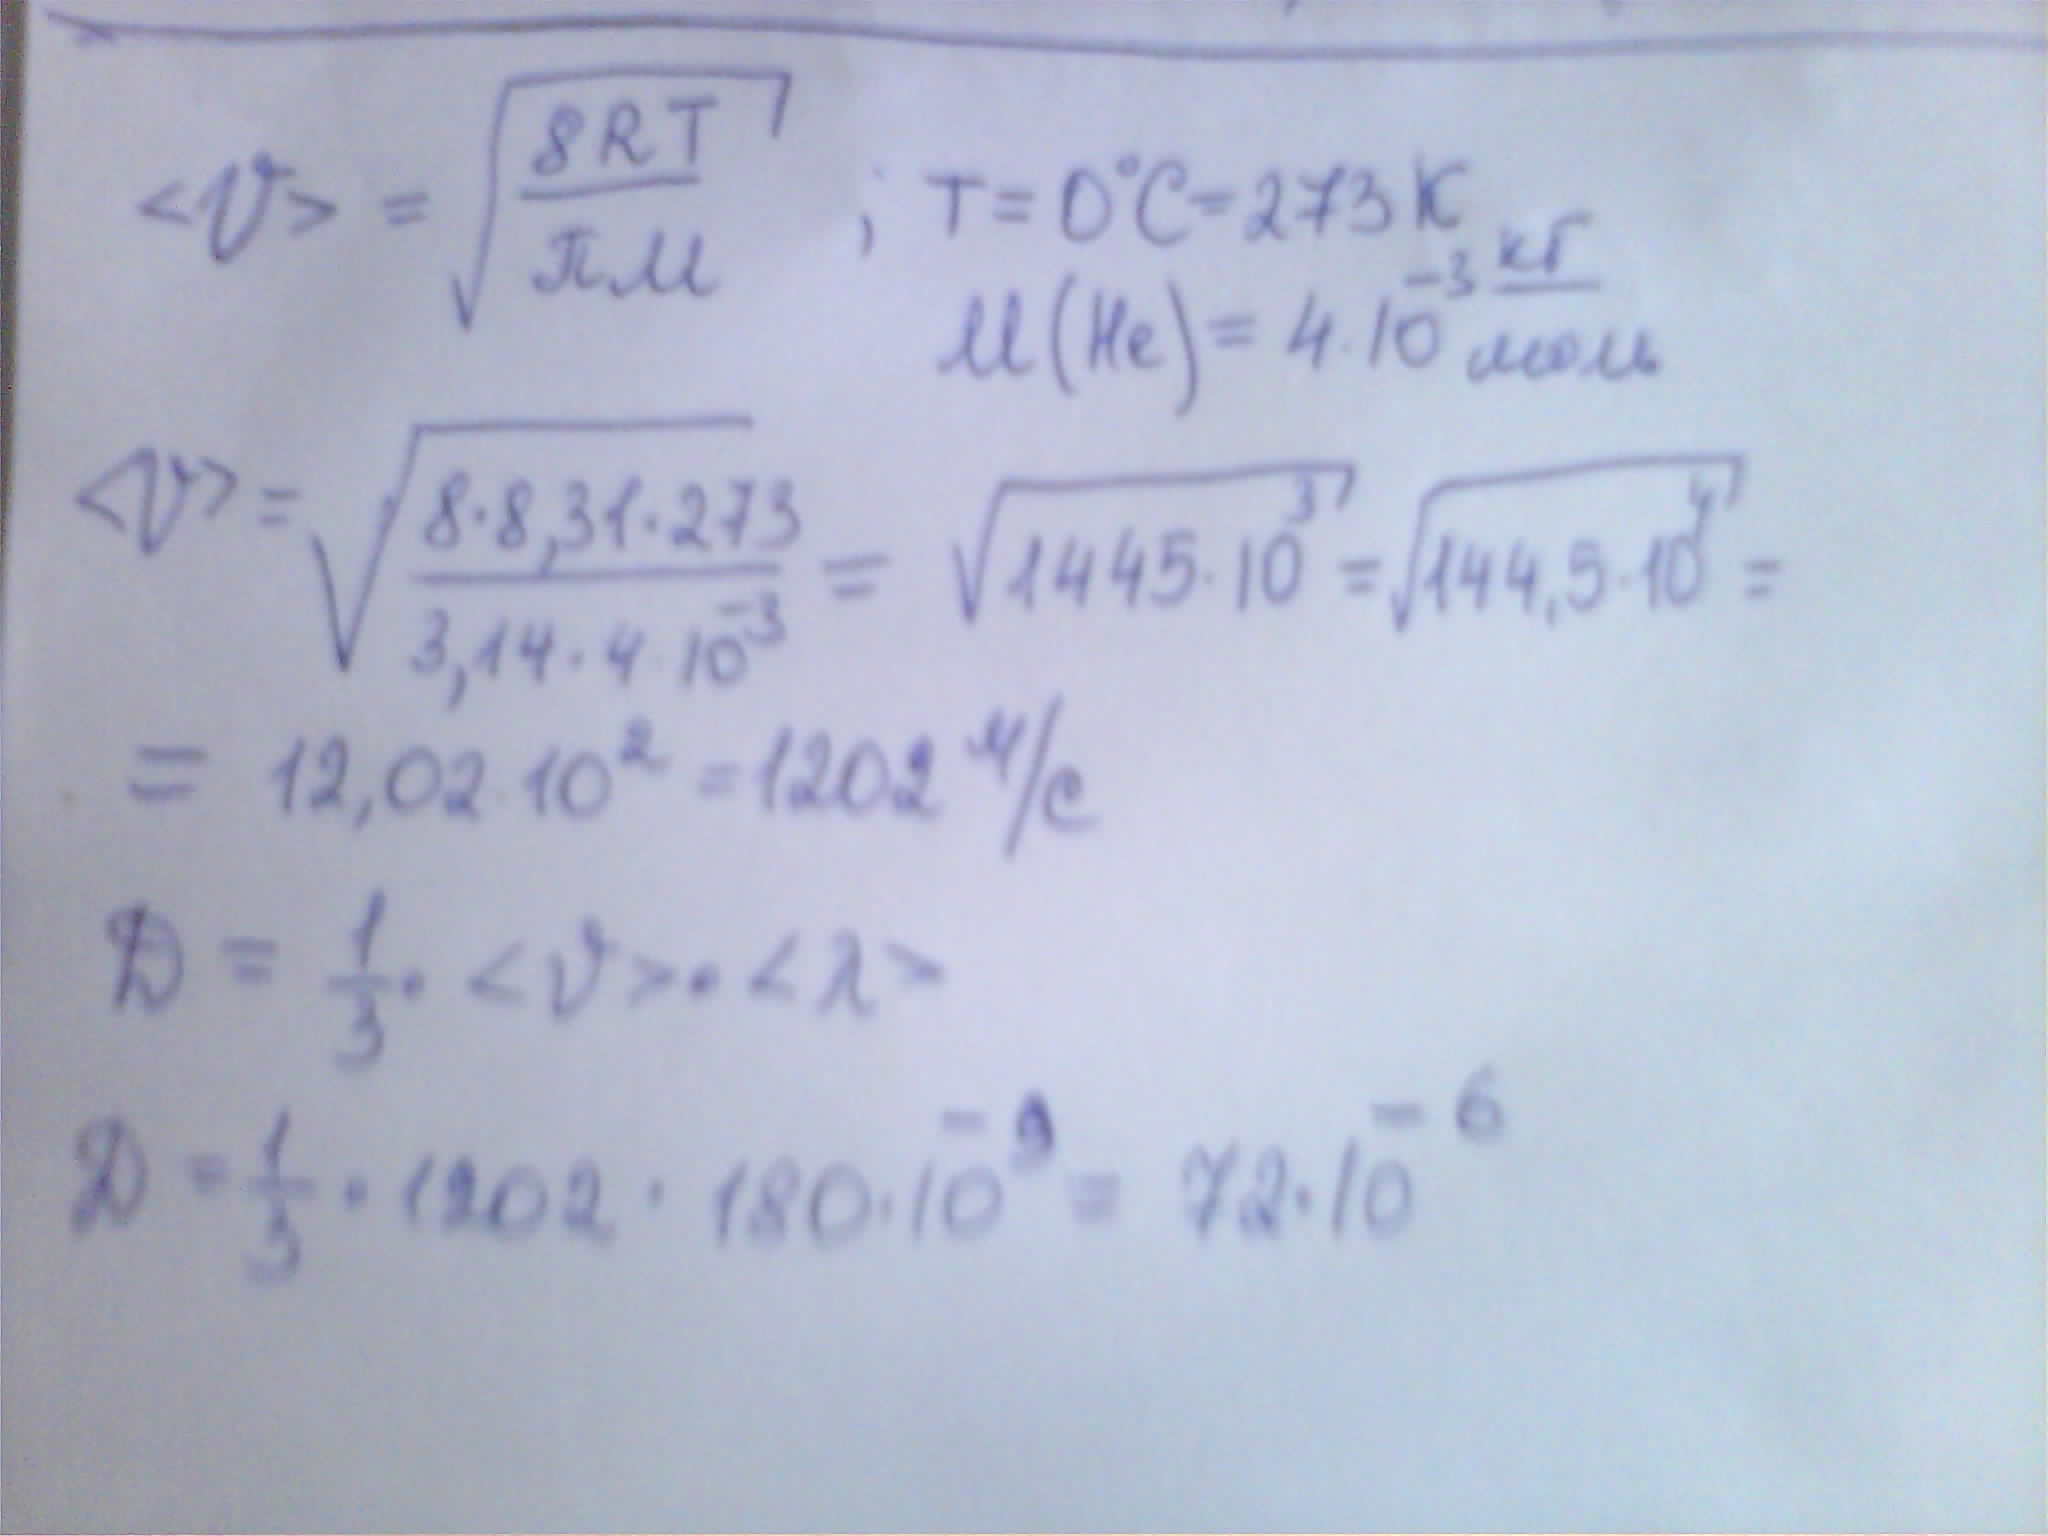 <v> = √(8RT/πM) ; T = 0°C = 273К
M(He) = 4·10⁻³ кг/моль
<v> = √(8·8,31·273/3,14·4·10⁻³) = √(1445·10³) = √(144,5·10⁴) =
= 12,02·10² = 1202 м/с
D = 1/3·<v>·<λ>
D = 1/3·1202·180·10⁻⁹ = 72·10⁻⁶